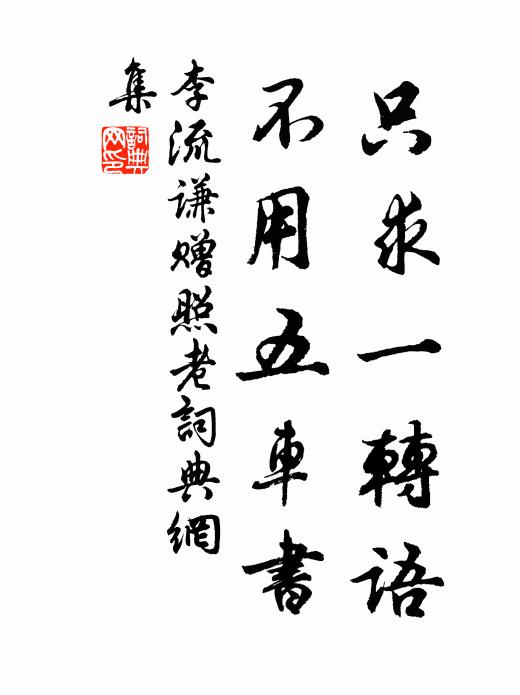 只求一轉語
不用五車書
李流謙贈照老詞典網
集
詞典
网印